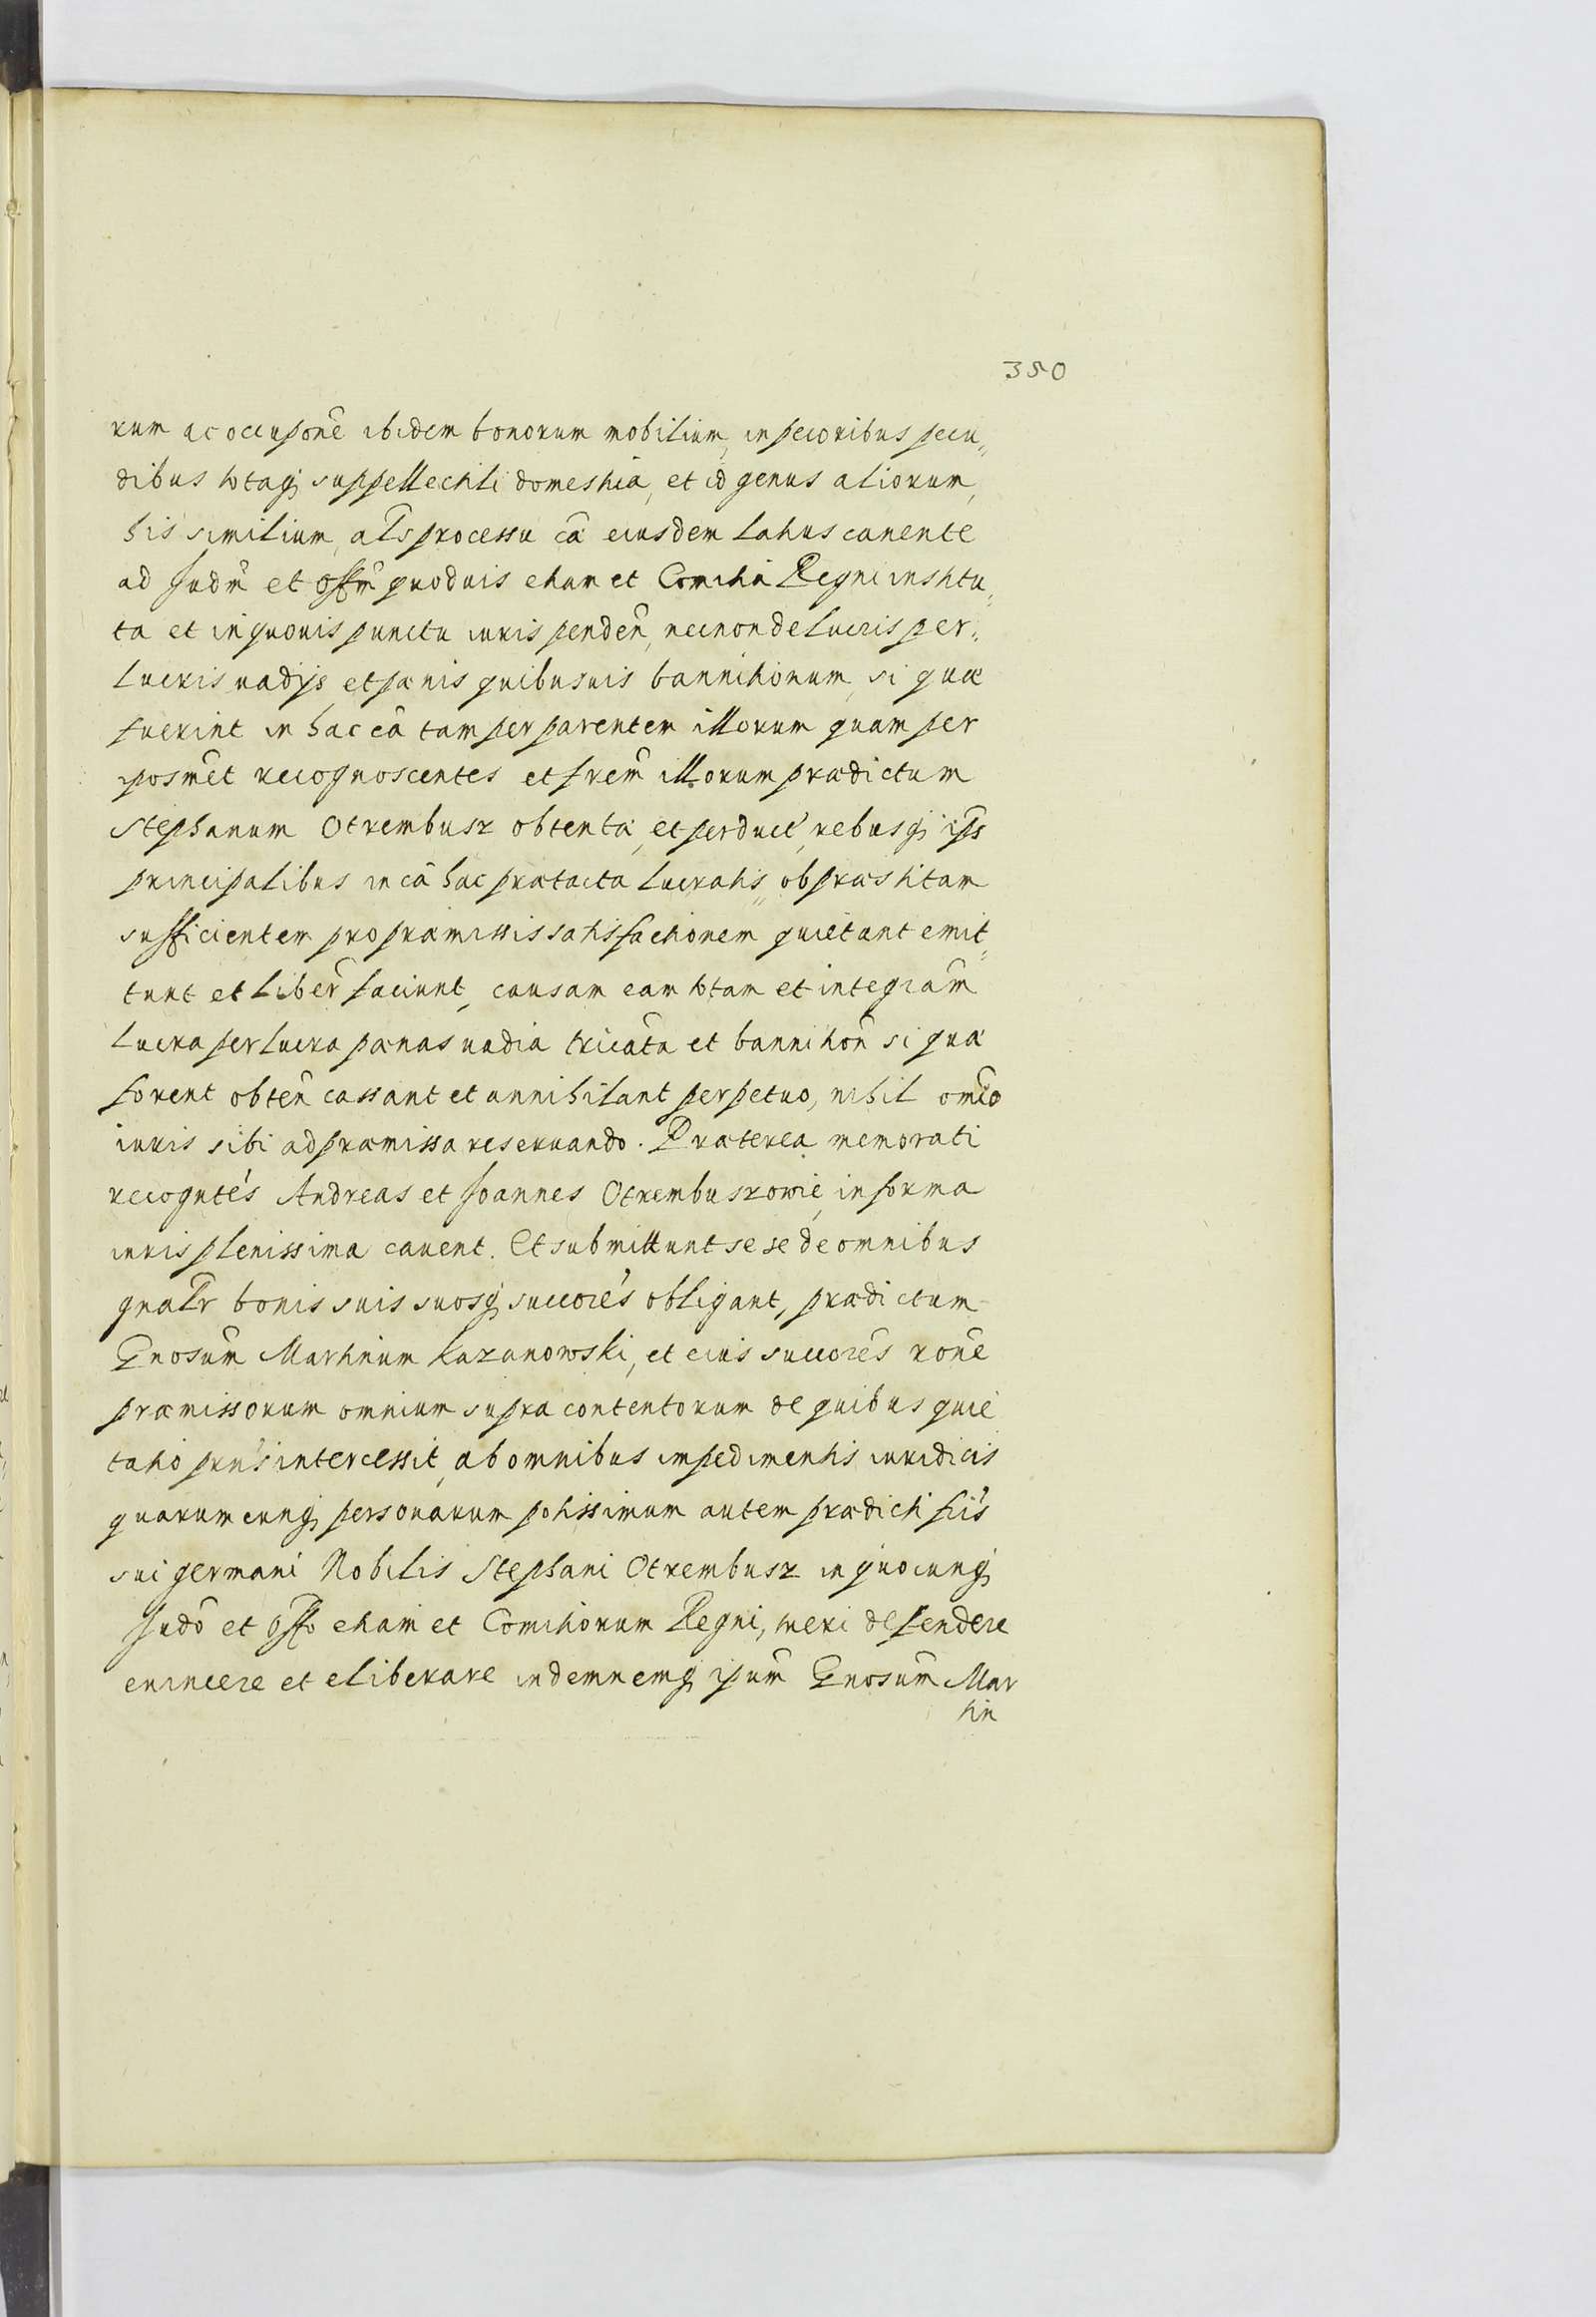 350
rum ac occupõne ibidem bonorum mobilium, in pecoribus pecu„
dibus totaq; suppellectili domestica, et id genus aliorum,
his similium, als processu cã eiusdem latius canente
ad Judm̃ et Offm̃ quoduis etiam et Comitia Regni institu„
ta et in quouis punctu iuris penden̄, necnon de lucris per„
lucris uadijs et pænis quibusuis bannitionum, si quæ
fuerint in hac cã tam per parentem illorum quam per
iposmet recognoscentes et frem̃ illorum prædictum
Stephanum Otrembusz obtenta, et perduct, rebusq; ips
principalibus in cã hac prætacta lucratis„ ob præstitam
sufficientem pro præmissis satisfactionem quietant emit„
tunt et liber̃ faciunt, causam eam totam et integram̃
lucra perlucra pænas uadia tricata et bannition̄ si quæ
forent obten̄ cassant et annihilant perpetuo, nihil om̃io
iuris sibi ad præmissa reseruando. Præterea memorati
recogntes Andreas et Joannes Otrembuszowie, in forma
iuris plenissima cauent. Et submittunt sese de omnibus
gnalr bonis suis suosq; succores obligant, prædictum
Gnosum̃ Martinum Kazanowski, et eius succores rone
præmissorum omnium supra contentorum de quibus quie
tatio pnŝ intercessit, ab omnibus impedimentis iuridicis
quarumcunq; personarum potissimum autem prædicti fris
sui germani Nobilis Stephani Otrembusz in quocunq;
Judõ et Offo etiam et Comitiorum Regni, tueri defendere
euincere et eliberare indemnemq; ipum̃ Gnosum̃ Mar
tin